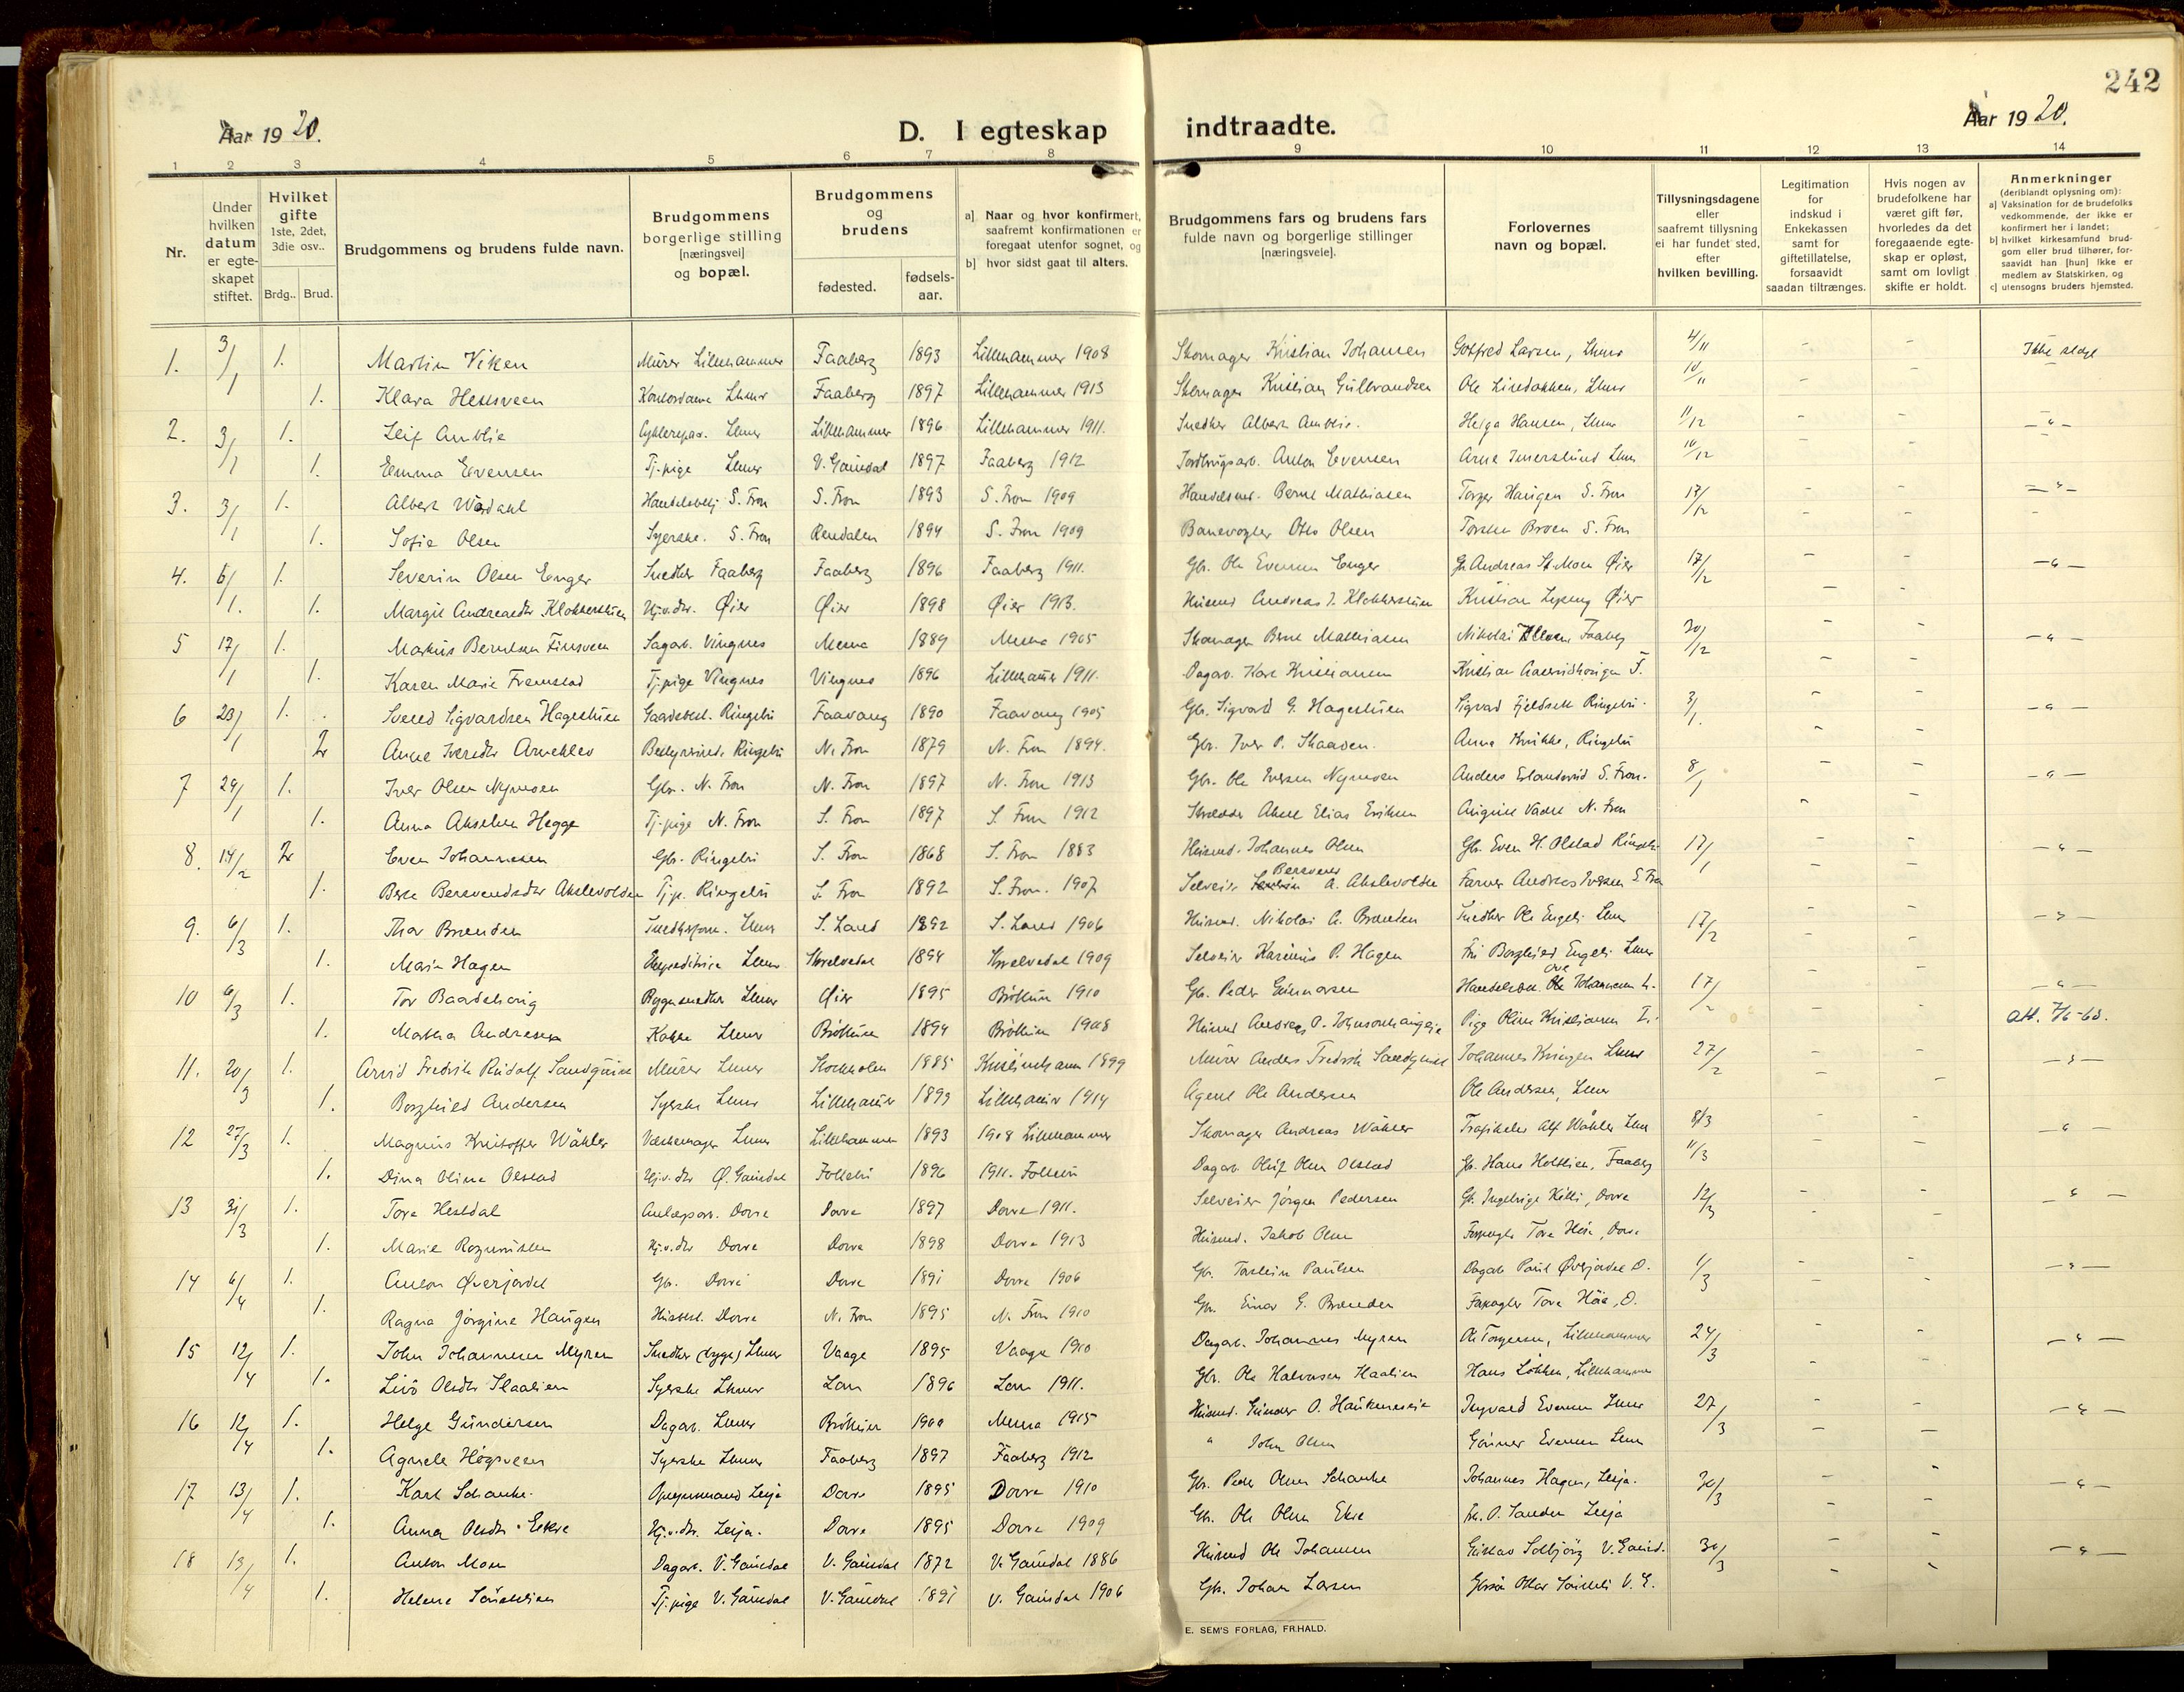 242
Aar 1920.
D. I egteskap indtraadte.
Aar 1920.
1 2 3 4 5 6 7 8 9 10 11 12 13 14
Nr.
Under hvilken datum er egteskapet stiftet.
Hvilket gifte 1ste, 2det, 3die osv..
Brdg.. Brud.
Brudgommens og brudens fulde navn.
Brudgommens borgerlige stilling [næringsvei] og bopæl.
Brudgommens og brudens
fødested. fødselsaar.
a] Naar og hvor konfirmert, saafremt konfirmationen er foregaat utenfor sognet, og
b] hvor sidst gaat til alters.
Brudgommens fars og brudens fars fulde navn og borgerlige stillinger [næringsveie].
Forlovernes navn og bopæl.
Tillysningsdagene eller saafremt tillysning ei har fundet sted, efter hvilken bevilling.
Legitimation for indskud i Enkekassen samt for giftetillatelse, forsaavidt saadan tiltrænges.
Hvis nogen av brudefolkene har været gift før, hvorledes da det foregaaende egteskap er opløst, samt om lovligt skifte er holdt.
Anmerkninger (deriblandt oplysning om):
a] Vaksination for de brudefolks vedkommende, der ikke er konfirmert her i landet;
b] hvilket kirkesamfund brudgom eller brud tilhører, forsaavidt han [hun] ikke er medlem av Statskirken, og
c] utensogns bruders hjemsted.
1. 3/1 1. Martin Viken Murer Lillehammer Faaberg 1893 Lillehammer 1908 Skomager Kristian Johansen Gotfred Larsen, Lhmr 4/11 - - Ikke slegt
1. Klara Hellsveen Kontordame Lhmr Faaberg 1897 Lillehammer 1913 Skomager Kristian Gulbrandsen Ole Linedokken, Lhmr 10/11 - -
2. 3/1 1. Leif Amblie Cyklerepar. Lhmr Lillehammer 1896 Lillehammer 1911. Snedker Albert Amblie. Helga Hansen, Lhmr 11/12 - - - " -
1. Emma Evensen Tj.pige Lhmr V. Gausdal 1897 Faaberg 1912 Jordbrugsarb. Anton Evensen Arne Imerslund Lhmr 10/12 - -
3. 3/1 1. Albert Wårdahl S. Fron S. Fron 1893 S. Fron 1909 Bernt Mathiasen Torger Haugen S. Fron 17/12 - - - " -
1. Sofie Olsen Syerske. S. Fron Rendalen 1894 S. Fron 1909 Banevogter Otto Olsen Torsten Broen S. Fron - -
4. 5/1 1. Severin Olsen Enger Snedker Faaberg Faaberg 1896 Faaberg 1911. Gbr. Ole Evensen Enger Andreas Moen Øier 17/12 - - - " -
1. Margit Andreasdtr. Klokkerstuen Hj.v.dtr. Øier Øier 1898 Øier 1913. Husmd Andreas J. Klokkerstuen Kristian Øier - -
5 17/1 1. Markus Berntsen Finsveen Sagarb. Vingnes Mesna 1889 Mesna 1905 Skomager Bernt Mathiasen Nikolai Faaberg 30/12 - - - " -
1. Karen Marie Fremstad Tj.pige Vingnes Vingnes 1896 Lillehamr 1911. Dagarb. Karl Kristiansen Kristian F. - -
6 23/1 1. Svend Sigvardsen Hagestuen Gaardsbest. Ringebu Faavang 1890 Faavang 1905 Gbr. Sigvard G. Hagestuen Sigvard Fjeldseth Ringebu. 3/1. - - - " -
2. Anne Iversdtr Ringebu N. Fron 1879 N. Fron 1894. Gbr. Iver P. Skaaden. Anna Ringebu - -
7 24/1 1. Iver Olsen Nymoen Gbr. N. Fron N. Fron 1897 N. Fron 1913 Gbr. Ole Iversen Nymoen Anders S. Fron. 8/1 - - - " -
1. Anna Akselsen Hegge Tj.pige N. Fron S. Fron 1897 S. Fron 1912 Skredder Aksel Elias Eriksen August N. Fron - -
8. 14/2 2. Even Johannesen Gbr. Ringebu S. Fron 1868 S. Fron 1883 Husmd. Johannes Olsen Gbr. Even H. Olstad Ringebu 17/1 - - - " -
1. Akslevolden Tj.p. Ringebu S. Fron 1892 S. Fron. 1907 Selveier A. Akslevolden Farver Andreas Iversen S. Fron - -
9. 6/3 1. Thor Brenden Lhmr S. Land 1892 S. Land 1906 Husmd. Nikolai A. Brenden Snedker Ole Engeli Lhmr 17/2 - - - " -
1. Marie Hagen Expeditrice Lhmr Skrelvedal 1894 Skrelvedal 1909 Selveier P. Hagen Borghild Engeli Lhmr - -
10 6/3 1. Tor Baardshaug Bygnsnedker Lhmr Øier 1895 Brøttum 1910 Gbr. Peder Gunnarsen Johannesen L. 17/2 - - - " -
1. Martha Andresen Kokke Lhmr Brøttum 1894 Brøttum 1908 Husmd Andreas Pige Oline Kristiansen L. - - att. 7/6-63.
11. 20/3 1. Arvid Fredrik Rudolf Sandquist Murer Lhmr Stockholm 1885 1899 Murer Anders Fredrik Sandquist Johannes Lhmr 27/2 - - - " -
1. Borghild Andersen Syerske Lhmr Lillehamr 1899 Lillehamr 1914 Agent Ole Andersen Ole Andersen, Lhmr - -
12 27/3 1. Magnus Kristoffer Wåhler Lhmr Lillehammer 1893 1908 Lillehammer Skomager Andreas Wåhler Alf Wåhler Lhmr 8/3 - - - " -
1. Dina Oline Olstad Hj.v.dtr Ø. Gausdal Follebu 1896 1911. Follebu Dagarb. Oluf Olsen Olstad Gb. Hans Holtlien, Faaberg 11/3 - -
13 31/3 1. Tore Hesldal Anlægsarb. Dovre Dovre 1897 Dovre 1911. Selveier Jørgen Pedersen Gb. Killi, Dovre 12/3 - - - " -
1. Marie Hj.v.dtr Dovre Dovre 1898 Dovre 1913 Husmd. Jakob Olsen Tore Høie, Dovre - -
14 6/4 1. Anton Øverjordet Gb. Dovre Dovre 1891 Dovre 1906 Gbr. Torstein Paulsen Dagarb Paul Øverjordet D. 11/3 - - - " -
1. Ragna Jørgine Haugen Husbest. Dovre N. Fron 1895 N. Fron 1910 Gbr. Einar G. Brenden Tore Høie, D. - -
15 12/4 1. John Johannesen Myren Snedker (bygn) Lhmr Vaage 1895 Vaage 1910 Dagarb. Johannes Myren O. Torgersen, Lillehammer 24/3 - - - " -
1. Livø Olsdtr Staalien Syerske Lhmr Lom 1896 Lom 1911. Gbr. Ole Halvorsen Haalien Hans Løkken, Lillehammer - -
16 12/4 1. Helge Gundersen Dagarb. Lhmr Brøttum 1900 Mesna 1915 Husmd. Gunder O. Ingvald Evensen Lhmr 27/3 - - - " -
1. Agnete Høgsveen Syerske Lhmr Faaberg 1897 Faaberg 1912 " John Olsen Gunner Evensen Lhmr - -
17 13/4 1. Karl Schanke. Lesja Dovre 1895 Dovre 1910 Gbr. Peder Olsen Schanke Johannes Hagen, Lesja. 30/3 - - - " -
1. Anna Olsdtr. Ekre Hj.v.dtr. Lesja. Dovre 1895 Dovre 1909 Gbr. Ole Olsen Ekre O. Sanden Lesja - -
18 13/4 1. Anton Moen Dagarb. V. Gausdal V. Gausdal 1872 V. Gausdal 1886 Husmd Ole Johansen Gustav Solbjørg V. Gausd. 30/3 - - - " -
1. Helene Tj.pige V. Gausdal V. Gausdal 1891 V. Gausdal 1906 Gbr. Johan Larsen Ottar V. G. - -
E. SEM'S FORLAG, FR.HALD.